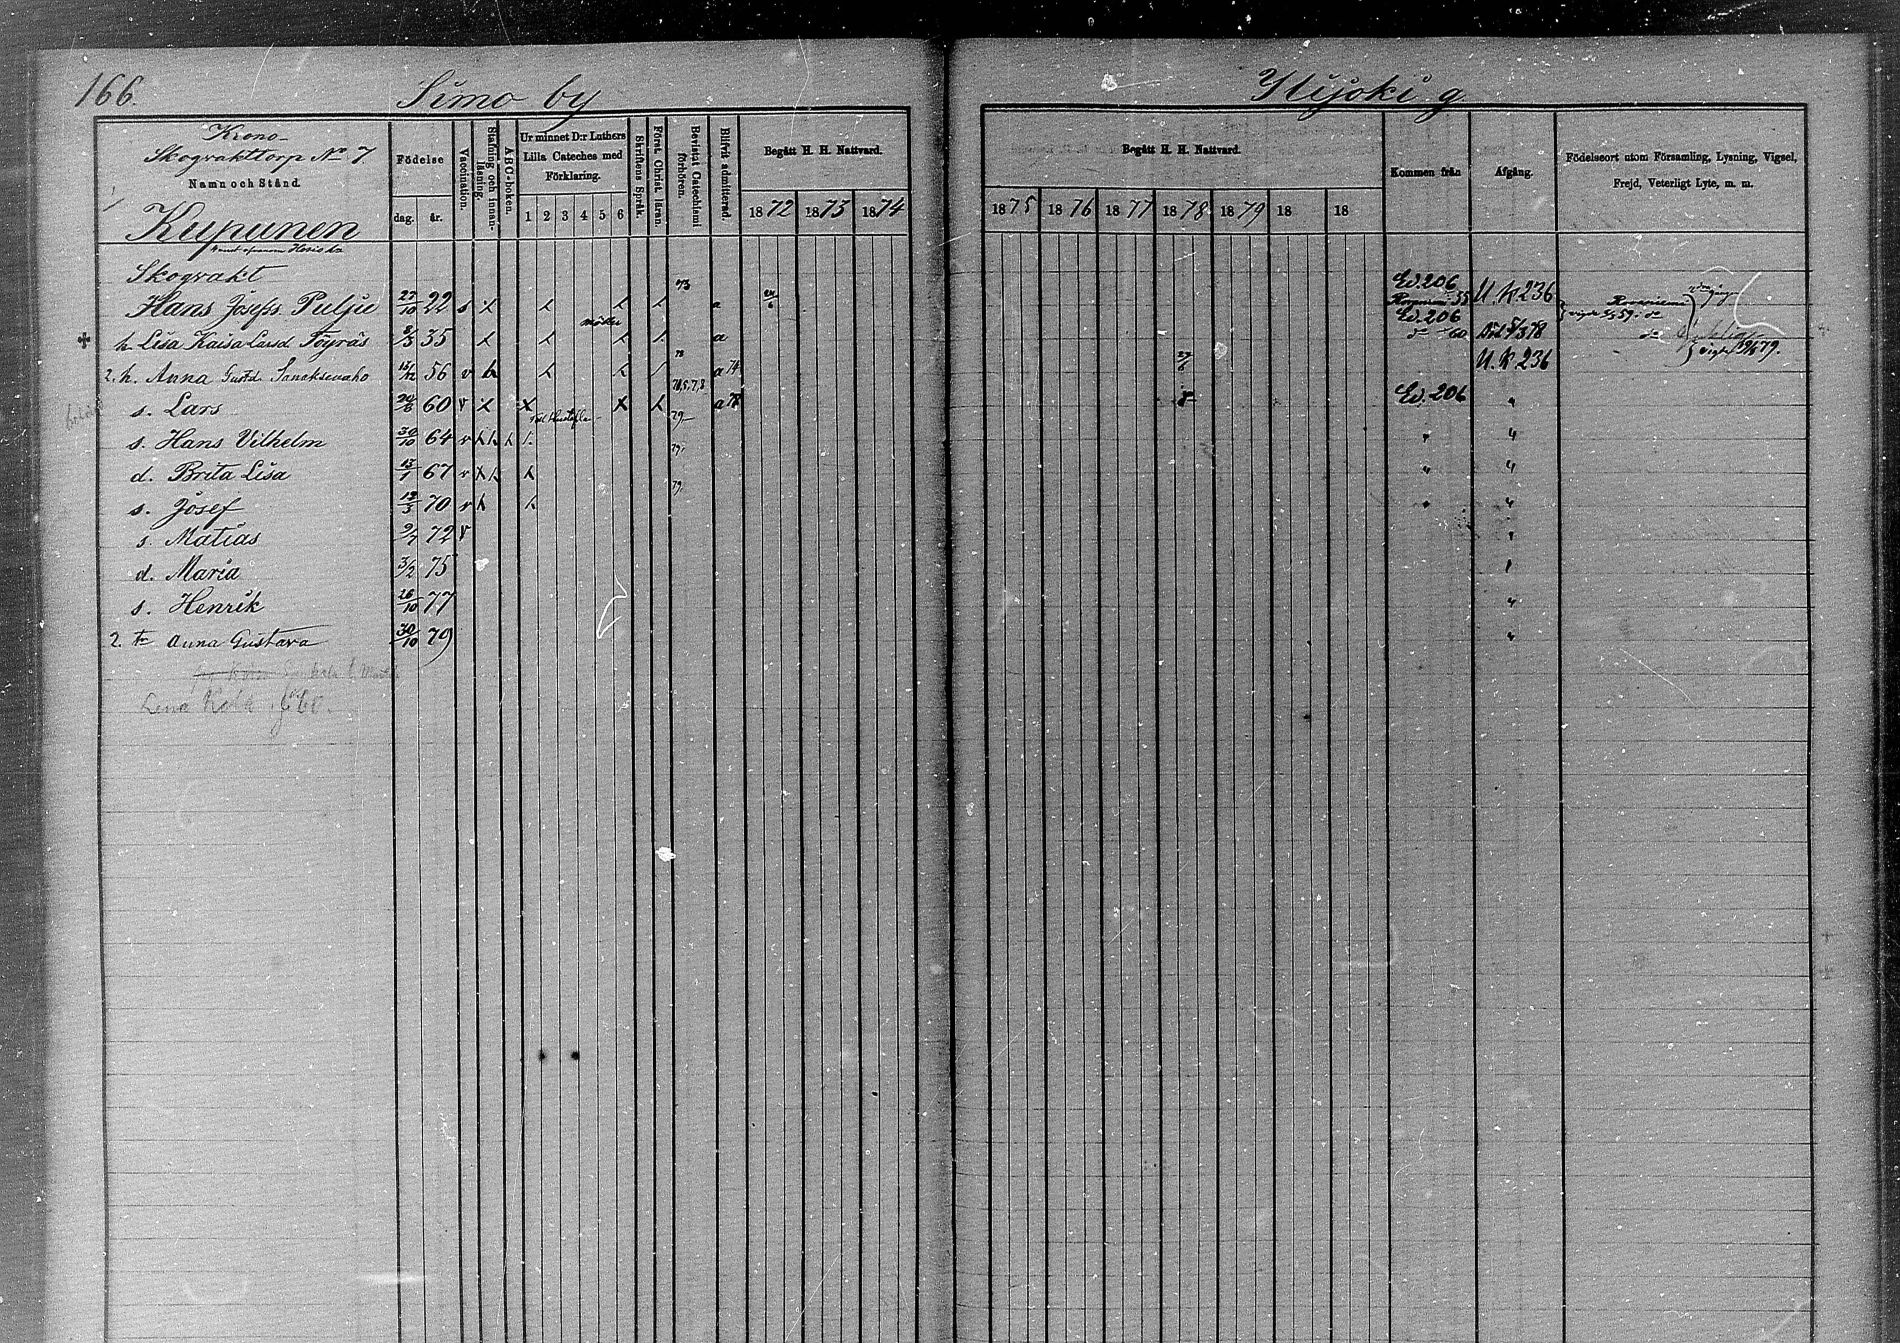 166.
Simo by
Ylijoki g.
Krono-
Skogvakttorp No 7.
Namn och Stånd.
Kupunen
Födelse
dag. år.
Vaccination.
Stafning och innan-läsning.
ABC-boken.
Ur minnet D:r Luthers
Lilla Cateches med
Förklaring.
1 2 3 4 5 6
Skriftens Språk.
Först. Christ. läran.
Bevistat Catechismi förhören.
Blifvit admitterad.
Begått H. H. Nattvard.
1872 1873 1874
Begått H. H. Nattvard.
1875 1876 1877 1878 1879 18 18
Kommen från
Afgång.
Födelseort utom Församling, Lysning, Vigsel,
Frejd, Veterligt Lyte, m. m.
Skogvakt 73 Ed. 206
Hans Josefss. Pulju 27/10 22 s a 55 U. k 236
Ed. 206
h. Lisa Kaisa Larsd. Töyräs 35 a 60 Död 5/3 78
2. h. Anna Gustd. 56 v a 74 U. k 236 79.
s. Lars 60 v a 78 Ed. 206 "
s. Hans Vilhelm 30/10 64 v 79. " "
d. Brita Lisa 13/1 67 v 79. " "
s. Josef 70 v 79. " "
s. Matias 9/7 72 v "
d. Maria 3/2 75 "
s. Henrik 26/10 77 "
2. Anna Gustava 30/10 79 "
Lena